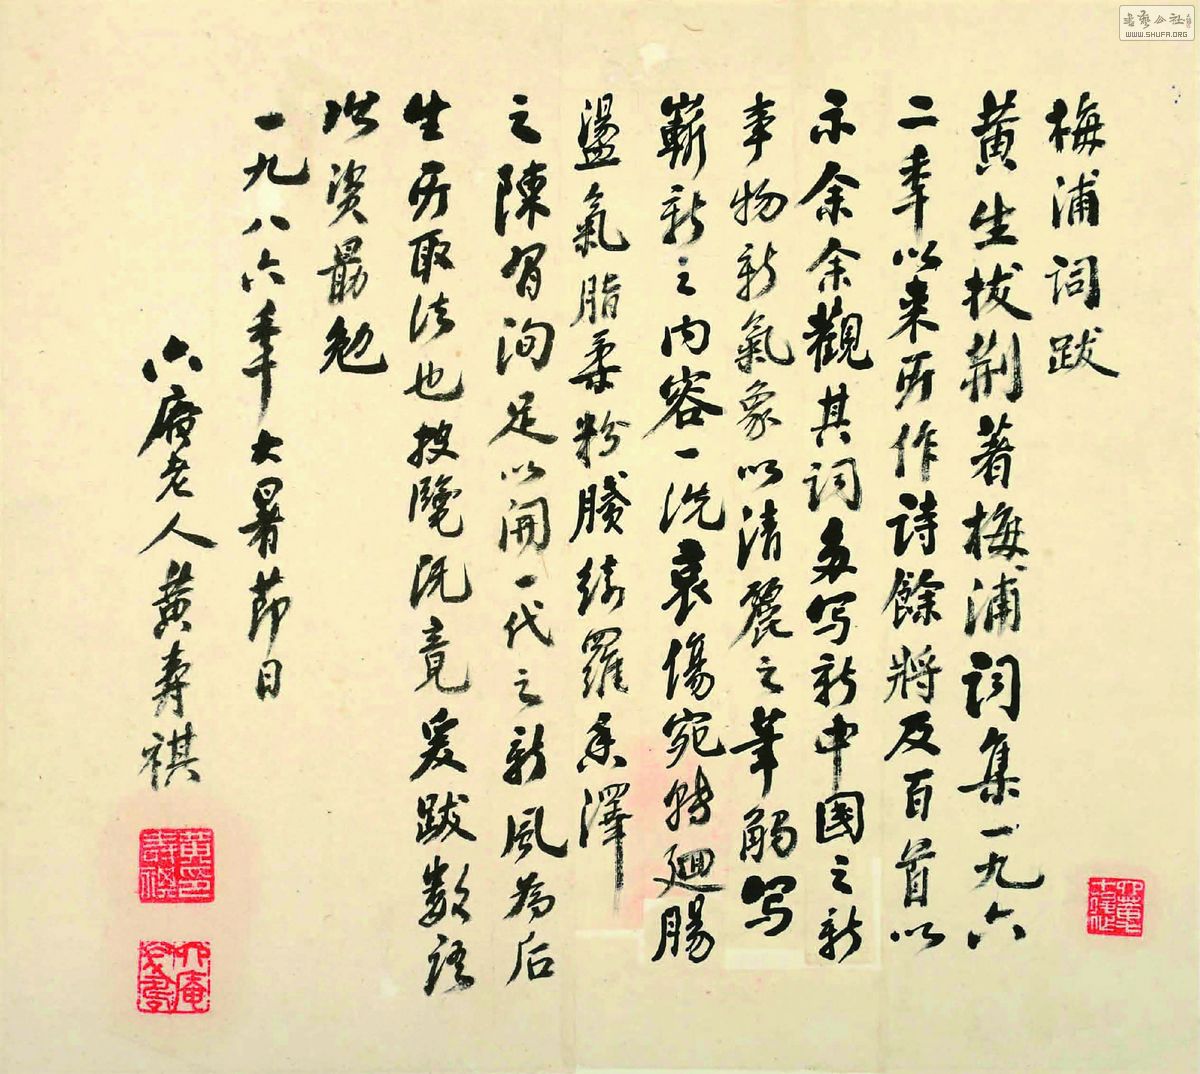 梅浦詞跋
黄生拔荆著梅浦詞集一九六
二年以来所作詩餘將及百首以
示余余觀其詞多写新中國之新
事物新氣象以清麗之筆觸写
嶄新之内容一洗哀傷宛轉廻腸
盪氣脂柔粉膩綺羅香澤
之陳習洵足以開一代之新風為后
生所取法也披覽既竟爰跋數語
以資勗勉
一九八六年大暑節日
六庵老人黄壽祺
黄印壽祺
WWW.SHUFA.ORG